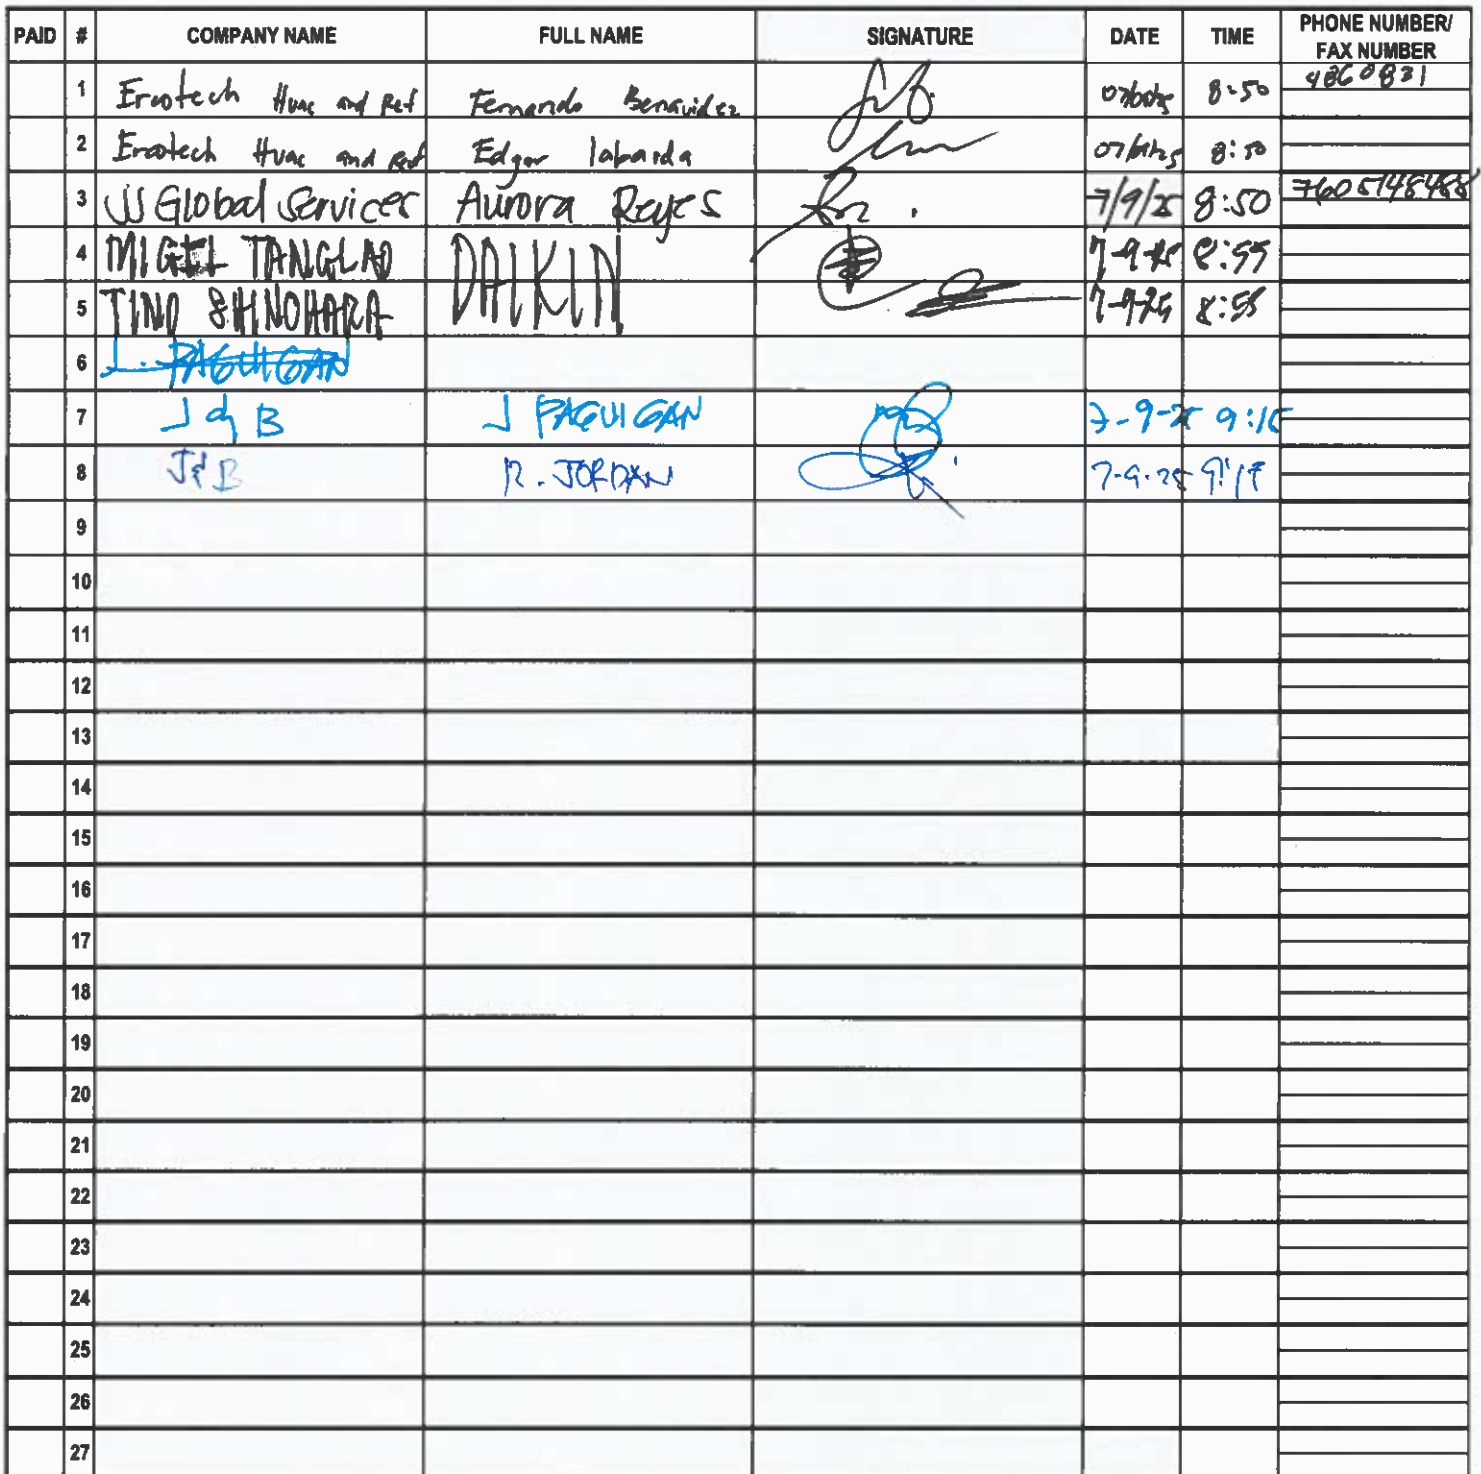 PAID # COMPANY NAME FULL NAME SIGNATURE DATE TIME PHONE NUMBER/ FAX NUMBER
1 Ercotech Hvac and Ref Fernando Benavidez 8:50 4860831
2 Ercotech Hvac and Ref Edgar labarda 8:50
3 JJ Global Services Aurora Reyes 7/9/25 8:50 7605148488
4 MIGEL TANGLAO DAIKIN 7-9-25 8:55
5 TINO SHINOHARA 7-9-25 8:55
6 J. PAGUIGAN
7 J & B J PAGUIGAN 7-9-25 9:15
8 J & B R. JORDAN 7-9-25 9:17
9
10
11
12
13
14
15
16
17
18
19
20
21
22
23
24
25
26
27